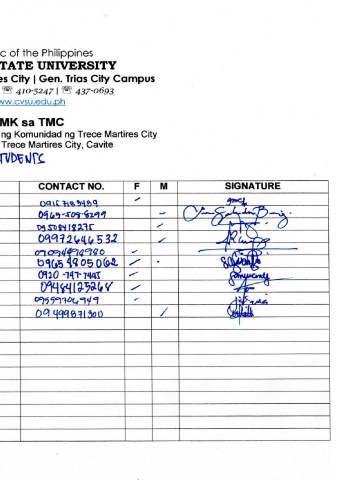 ic of the Philippines
TATE UNIVERSITY
es City | Gen. Trias City Campus
☏ 410-5247 | ☏ 437-0693
www.cvsu.edu.ph
MK sa TMC
ng Komunidad ng Trece Martires City
Trece Martires City, Cavite
STUDENTS
CONTACT NO. F M SIGNATURE
09157183489
0965-508-8299
09508418275
09972646532
07094890980
09654805062
0920-747-7445
09484125268
09559706949
09499871300